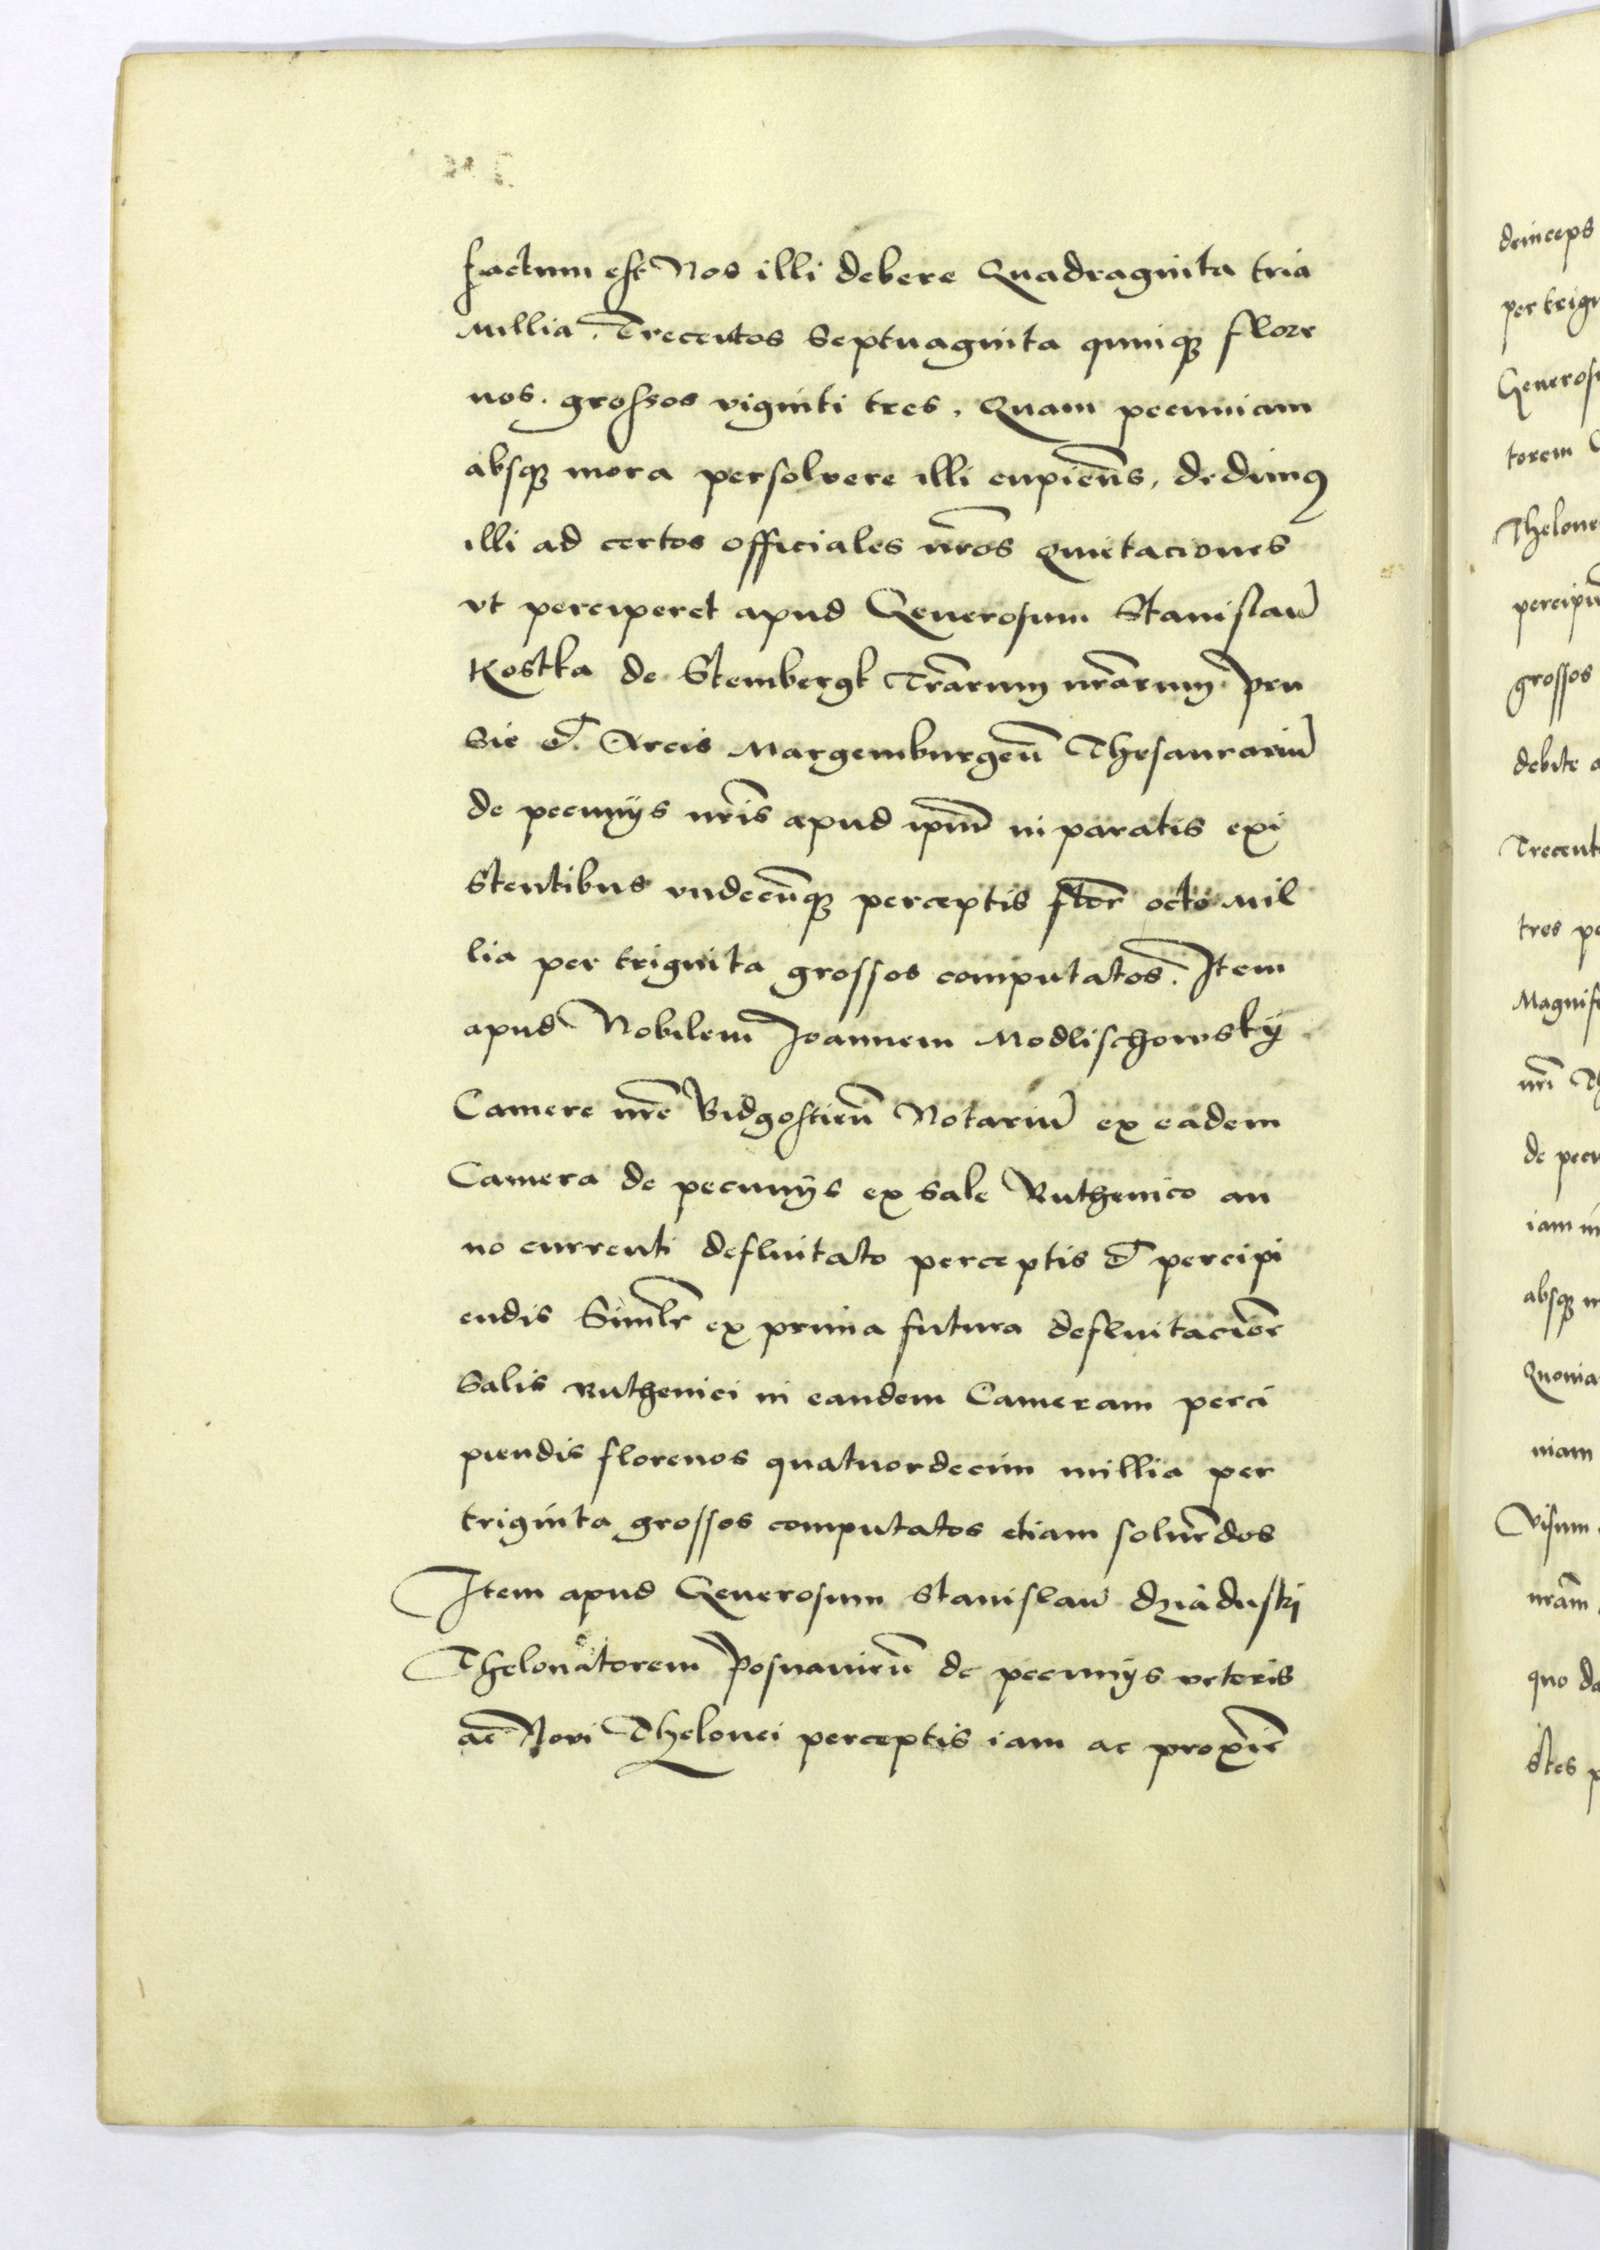 factum est Nos illi debere Quadraginta tria
Millia. Trecentos Septuaginta quinq flore
nos. grossos viginti tres. Quam pecuniam
absq mora persolvere illi cupien̄s, dedimꝰ
illi ad certos officiales nr̄os Quietaciones
vt perciperet apud Generosum Stanislaū
Kostka de Stembergk Tr̄arum nr̄arum Pru
sie et Arcis Margemburgeñ Thesaurariū
de pecunijs nr̄is apud ip̄m in paratis exi
stentibus vndecūq perceptis flor̄ octo Mil
lia per triginta grossos computatos. Item
apud Nobilem Joannem Modlischowskÿ
Camere nr̄e Bidgostieñ Notariū ex eadem
Camera de pecunijs ex Sale Ruthenico an
no currenti defluitato perceptis et percipi
endis Simlr̄ ex prima futura defluitacōe
Salis Ruthenici in eandem Cameram perci
piendis florenos quatuordecim millia per
triginta grossos computatos etiam soluendos
Item apud Generosum Stanislaū dziaduski
Thelonatorem Posnanieñ de pecunijs veteris
ac Novi Thelonei perceptis iam ac proxīe
deinceps
per trigi
Generosu
torem
Thelone
percipi
grossos
debite a
Trecent
tres pe
Magnifi
nr̄i Th
de pecu
iam in
absq m
Quonia
niam
Visum
nr̄am
quo da
stes p